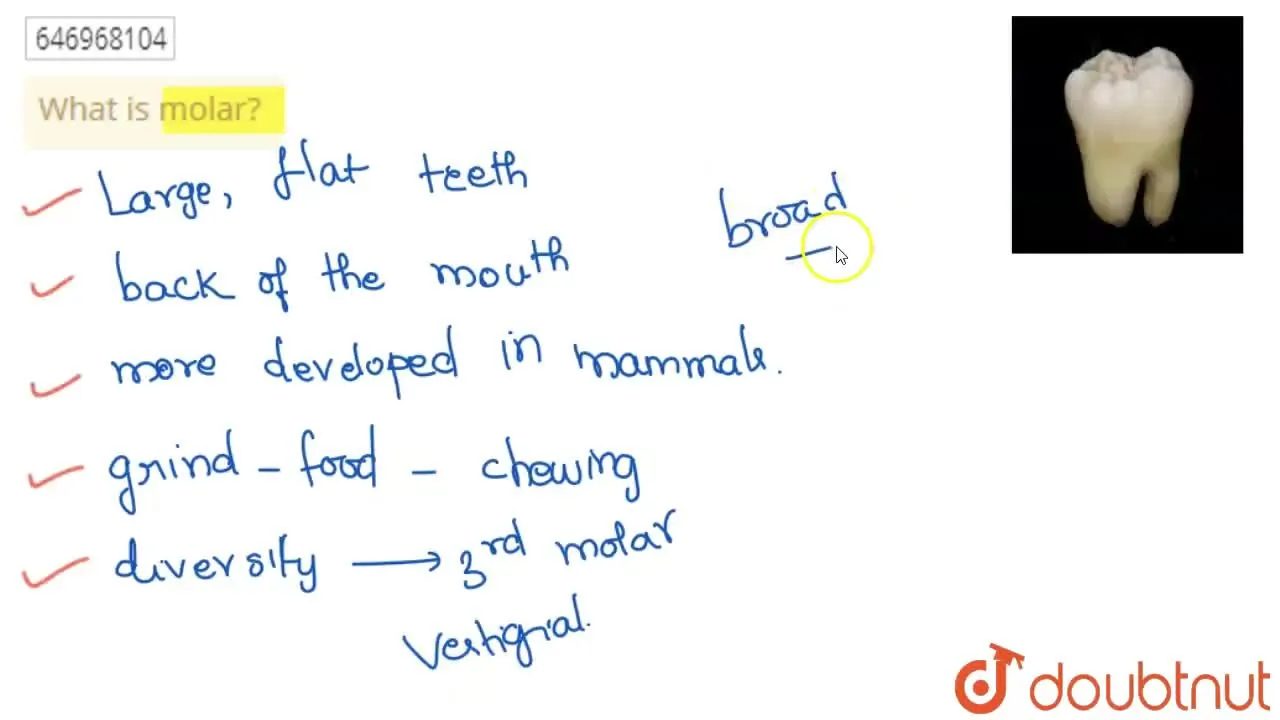 646968104
What is molar?
Large, flat teeth
broad
back of the mouth
more developed in mammals.
grind - food - chewing
diversity → 3rd molar
Vestigial.
doubtnut